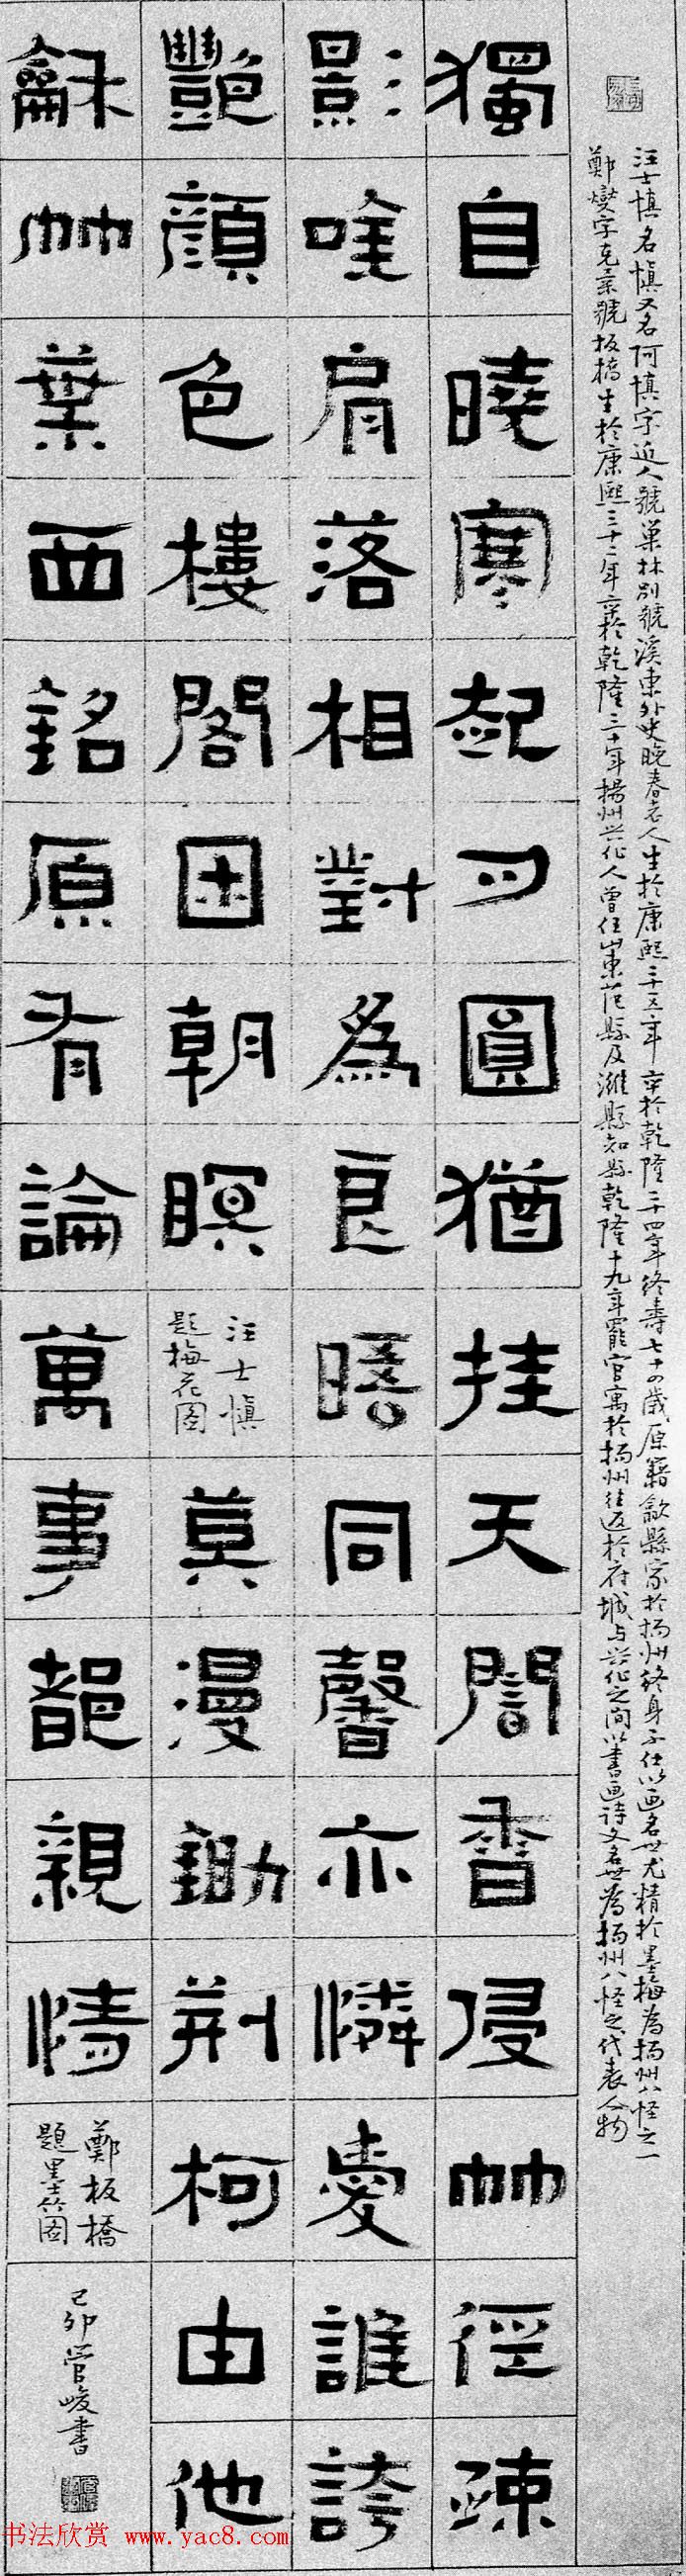 汪士慎名慎又名阿慎字近人號巢林別號溪東外史晚春老人生於康熙二十五年卒於乾隆二十四年終壽七十四歲原籍歙縣家於揚州終身不仕以画名世尤精於墨梅為揚州八怪之一
鄭燮字克柔號板橋生於康熙三十二年卒於乾隆三十年揚州兴化人曾任山東范縣及濰縣知縣乾隆十九年罷官寓於揚州往返於府城与兴化之间以書画詩文名世為揚州八怪之代表人物
獨自曉寒起月圓猶挂天闇香侵竹徑疎
影唼肩落相對為良晤同馨亦憐愛誰誇
艷顏色樓閣困朝暝
汪士慎
題梅花图
莫漫鋤荊柯由他
龢竹葉西銘原有論萬事都親情
鄭板橋
題墨竹图
己卯管峻書
书法欣赏 www.yac8.com